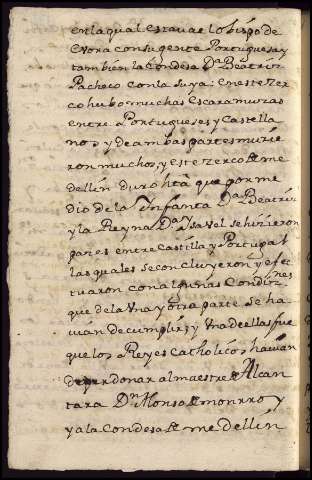 en la qual estava el obispo de
Evora con su gente Portuguesa y
tambien la Condesa Dª Beatriz
Pacheco con la suya: en este zer
co hubo muchas Escaramuzas
entre Portugueses y Castella
nos y de ambas partes murie
ron muchos, y este zerco de me
dellin duro hta que por me
dio de la Ynfanta Dª Beatriz
y la Reyna Dª Ysavel se hizieron
pazes entre Castilla y Portugal
las quales se concluyeron y efec
tuaron con algunas Condiznes
que de la Una y otra parte se ha
uian de cumplir; y Una de ellas fue
que los Reyes Catholicos hauian
de perdonar al maestre de Alcan
tara Dn Alonso de monrroy
y a la Condesa de medellin